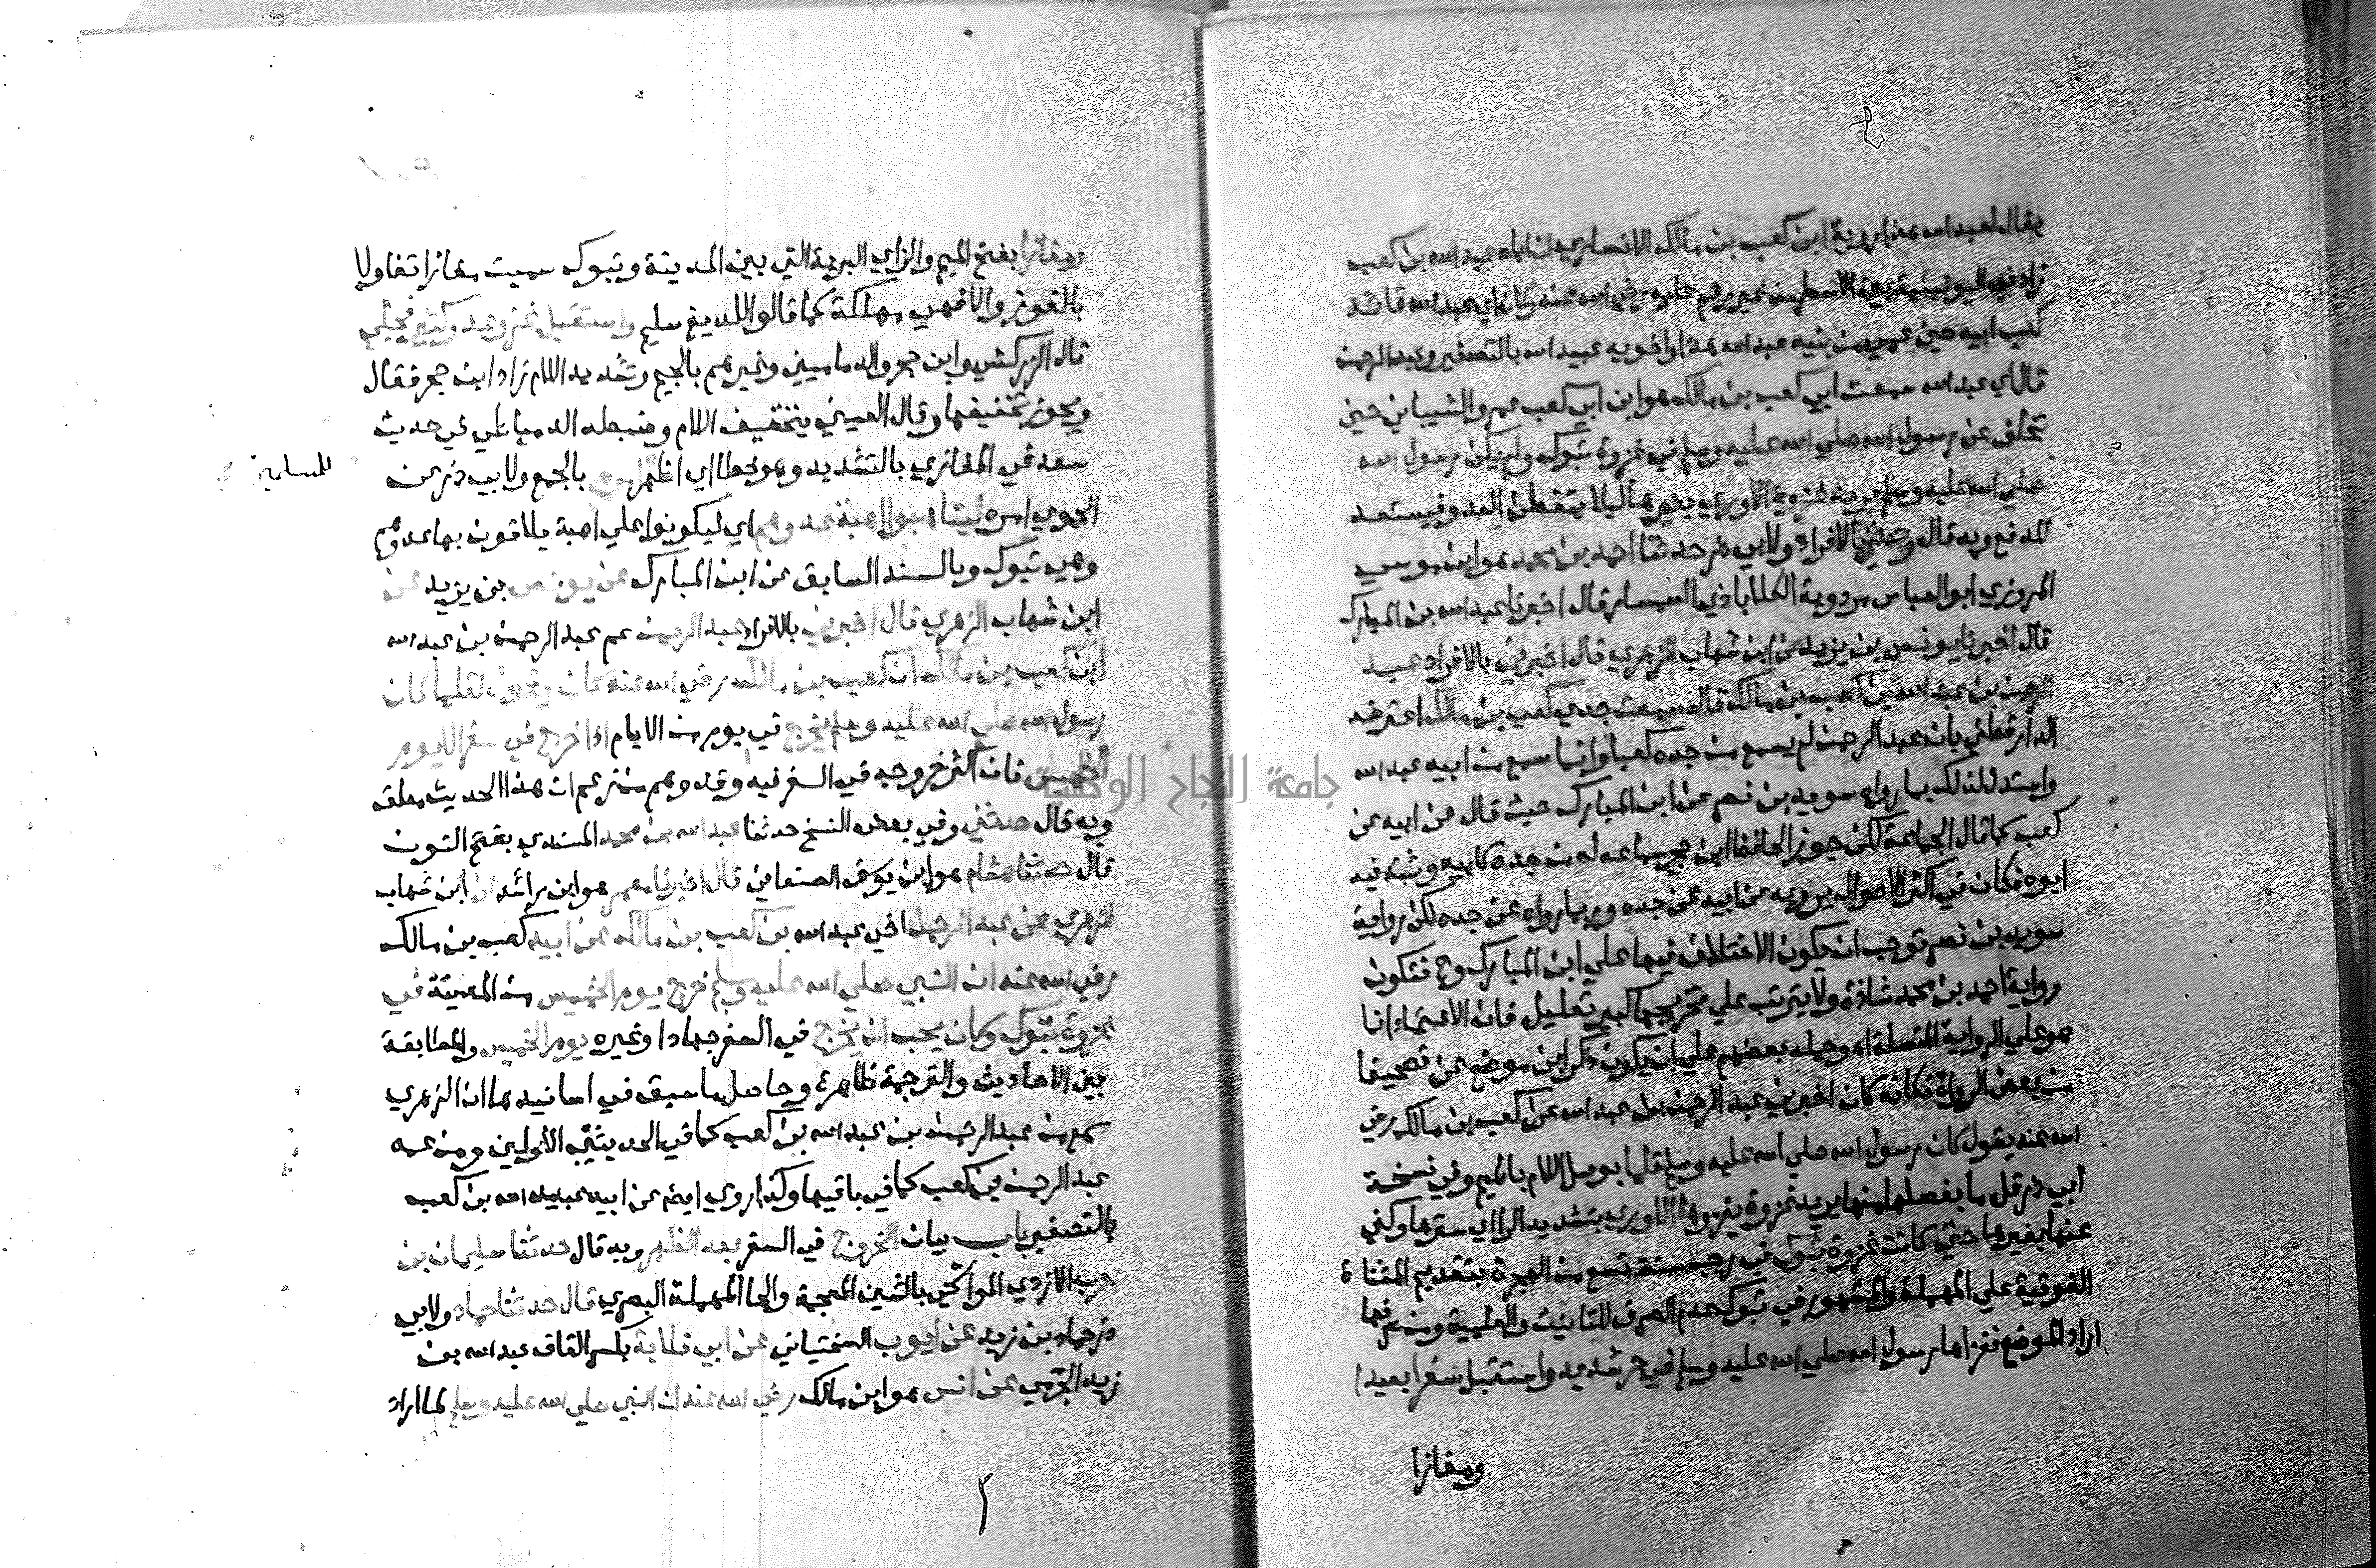 يقال لعبد الله هذا روية ابن كعب بن مالك الانصاري ان اباه عبد الله بن كعب
زاد في اليونينية بين الاسطر من غير رقم عليه رضي الله عنه وكان اي عبد الله قائد
كعب ابيه حين عمي من بنيه عبد الله هذا واخويه عبيد الله بالتصغير وعبد الرحمن
قال اي عبد الله سمعت ابي كعب بن مالك هو ابن ابي كعب عمرو الشيباني حين
تخلف عن رسول الله صلي الله عليه وسلم في غزوة تبوك ولم يكن رسول الله
صلي الله عليه وسلم يريد غزوة الا وري بغيرها ليلا يتفطن العدو فيستعد
للدفع وبه قال وحدثني بالافراد ولابي ذر حدثنا احمد بن محمد هو ابن موسي
المروزي ابو العباس مردوية الكلاباذي السمسار قال اخبرنا عبد الله بن المبارك
قال اخبرنا يونس بن يزيد عن ابن شهاب الزهري قال اخبرني بالافراد عبد
الرحمن بن عبد الله بن كعب بن مالك قال سمعت جدي كعب بن مالك اعترضه
الدارقطني بان عبد الرحمن لم يسمع من جده كعبا وانما سمع من ابيه عبد الله
واستدل لذلك بما رواه سويد بن نصر عن ابن المبارك حيث قال عن ابيه عن
كعب كما قال الجماعة لكن جوز الحافظ ابن حجر سماعه له من جده كابيه وثبته فيه
ابوه فكان في اكثر الاحوال يرويه عن ابيه عن جده وربما رواه عن جده لكن رواية
سويد بن نصر توجب ان يكون الاختلاف فيها علي ابن المبارك وح فتكون
رواية احمد بن محمد شاذة ولا يترتب علي تخريجها كبير تعليل فان الاعتماد انما
هو علي الرواية المتصلة اه وحمله بعضهم علي ان يكون ذكر ابن موضع عن تصحيفا
من بعض الرواة فكانه كان اخبرني عبد الرحمن بن عبد الله عن كعب بن مالك رضي
الله عنه يقول كان رسول الله صلي الله عليه وسلم قلما بوصل اللام بالميم وفي نسخة
ابي ذر قل ما بفصلها منها يريد غزوة يغزوها الا وري بتشديد الرا اي سترها وكني
عنها بغيرها حتي كانت غزوة تبوك في رجب سنة تسع من الهجرة بتقديم المثناة
الفوقية علي المهملة والمشهور في تبوك عدم الصرف للتانيث والعلمية ومن صرفها
اراد الموضع فغزاها رسول الله صلي الله عليه وسلم في حر شديد واستقبل سفرا بعيدا
ومفازا
ومفازا بفتح الميم والزاي البرية التي بين المدينة وتبوك سميت مفازا تفاولا
بالفوز والا فهي مهلكة كما قالوا اللديغ سليم واستقبل غزو عدو كثير فجلي
قال الزركشي وابن حجر والدماميني وغيرهم بالجيم وتشديد اللام زاد ابن حجر فقال
ويجوز تخفيفها وقال العيني بتخفيف اللام وضبطه الدمياطي في حديث
سعد في المغازي بالتشديد وهو خطا اي اظهر للمسلمين بالجمع ولابي ذر عن
الحموي امره ليتاهبوا اهبة عدوهم اي ليكونوا علي اهبة يلاقون بها عدوهم
وهي تبوك وبالسند السابق عن ابن المبارك عن يونس بن يزيد عن
ابن شهاب الزهري قال اخبرني بالافراد عبد الرحمن عم عبد الرحمن بن عبد الله
ابن كعب بن مالك ان كعب بن مالك رضي الله عنه كان يقول لقلما كان
رسول الله صلي الله عليه وسلم يخرج في يوم من الايام اذا خرج في سفر الا يوم
الخميس فان اكثر خروجه في السفر فيه وقد وهم من زعم ان هذا الحديث معلقه
وبه قال حدثني وفي بعض النسخ حدثنا عبد الله بن محمد المسندي بفتح النون
قال حدثنا هشام هو ابن يوسف الصنعاني قال اخبرنا معمر هو ابن راشد عن ابن شهاب
الزهري عن عبد الرحمن اخي عبد الله بن كعب بن مالك عن ابيه كعب بن مالك
رضي الله عنه ان النبي صلي الله عليه وسلم خرج يوم الخميس من المدينة في
غزوة تبوك وكان يحب ان يخرج في السفر جهادا وغيره يوم الخميس والمطابقة
بين الاحاديث والترجمة ظاهرة وحاصل ما سبق في اسانيدها ان الزهري
سمع من عبد الرحمن بن عبد الله بن كعب كما في الحديثين الاولين ومن عمه
عبد الرحمن بن كعب كما في باقيها وكذا روي ايضا عن ابيه عبيد الله بن كعب
بالتصغير باب بيان الخروج في السفر بعد الظهر وبه قال حدثنا سليمان بن
حرب الازدي الواشحي بالشين المعجمة والحا المهملة البصري قال حدثنا حماد ولابي
ذر حماد بن زيد عن ايوب السختياني عن ابي قلابة بكسر القاف عبد الله بن
زيد الجرمي عن انس هو ابن مالك رضي الله عنه ان النبي صلي الله عليه وسلم لما اراد
جامعة النجاح الوطنية